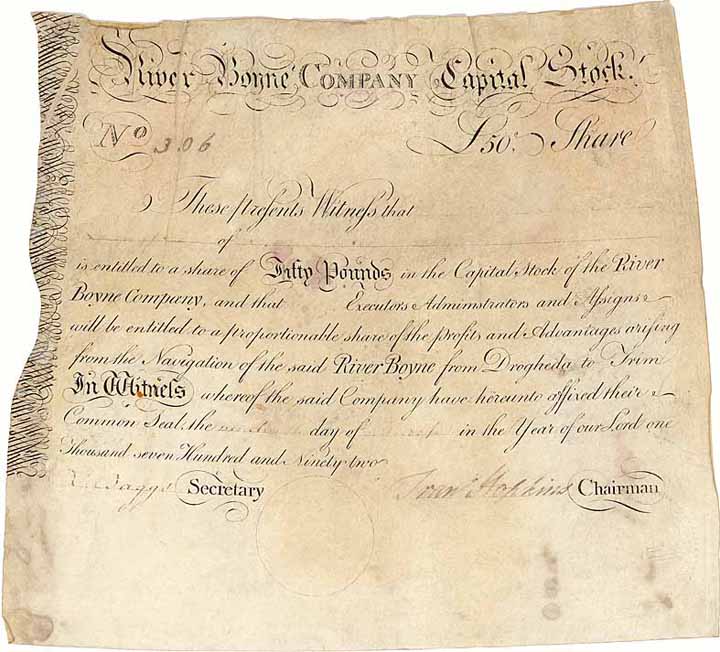 River Boyne COMPANY Capital Stock.
No 306 £50. Share
These Presents Witness that
of
is entitled to a share of Fifty Pounds in the Capital Stock of the River
Boyne Company, and that Executors Adminstrators and Assigns
will be entitled to a proportionable share of the profits and Advantages arising
from the Navigation of the said River Boyne from Drogheda to Trim
In Witness whereof the said Company have hereunto affixed their
Common Seal, the day of in the Year of our Lord one
Thousand seven Hundred and Ninety two
Baggs Secretary Frans Hopkins Chairman